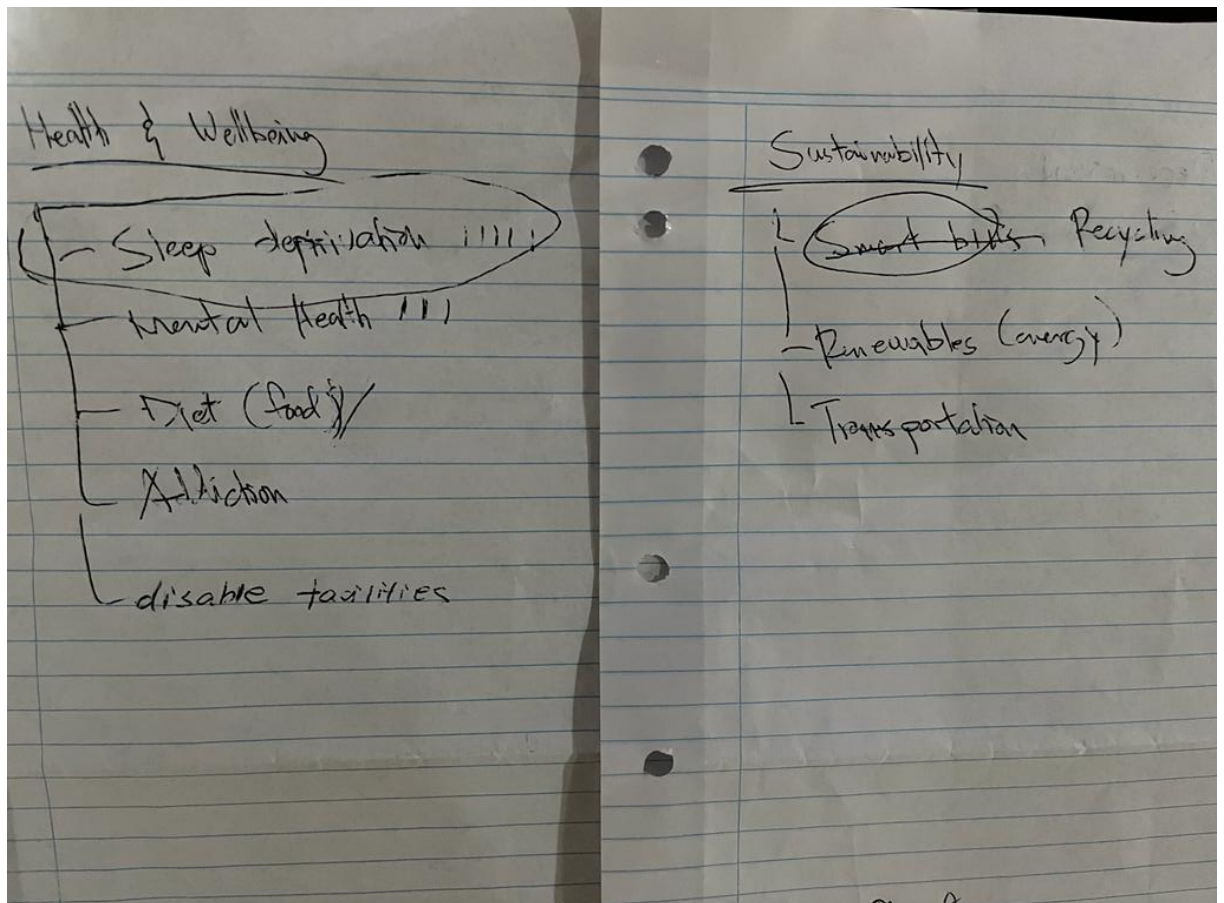 Health & Wellbeing
- Sleep deprivation !!!!!
- Mental Health !!!
- Diet (food)
- Addiction
- disable facilities
Sustainability
Smart bins Recycling
- Renewables (energy)
Transportation